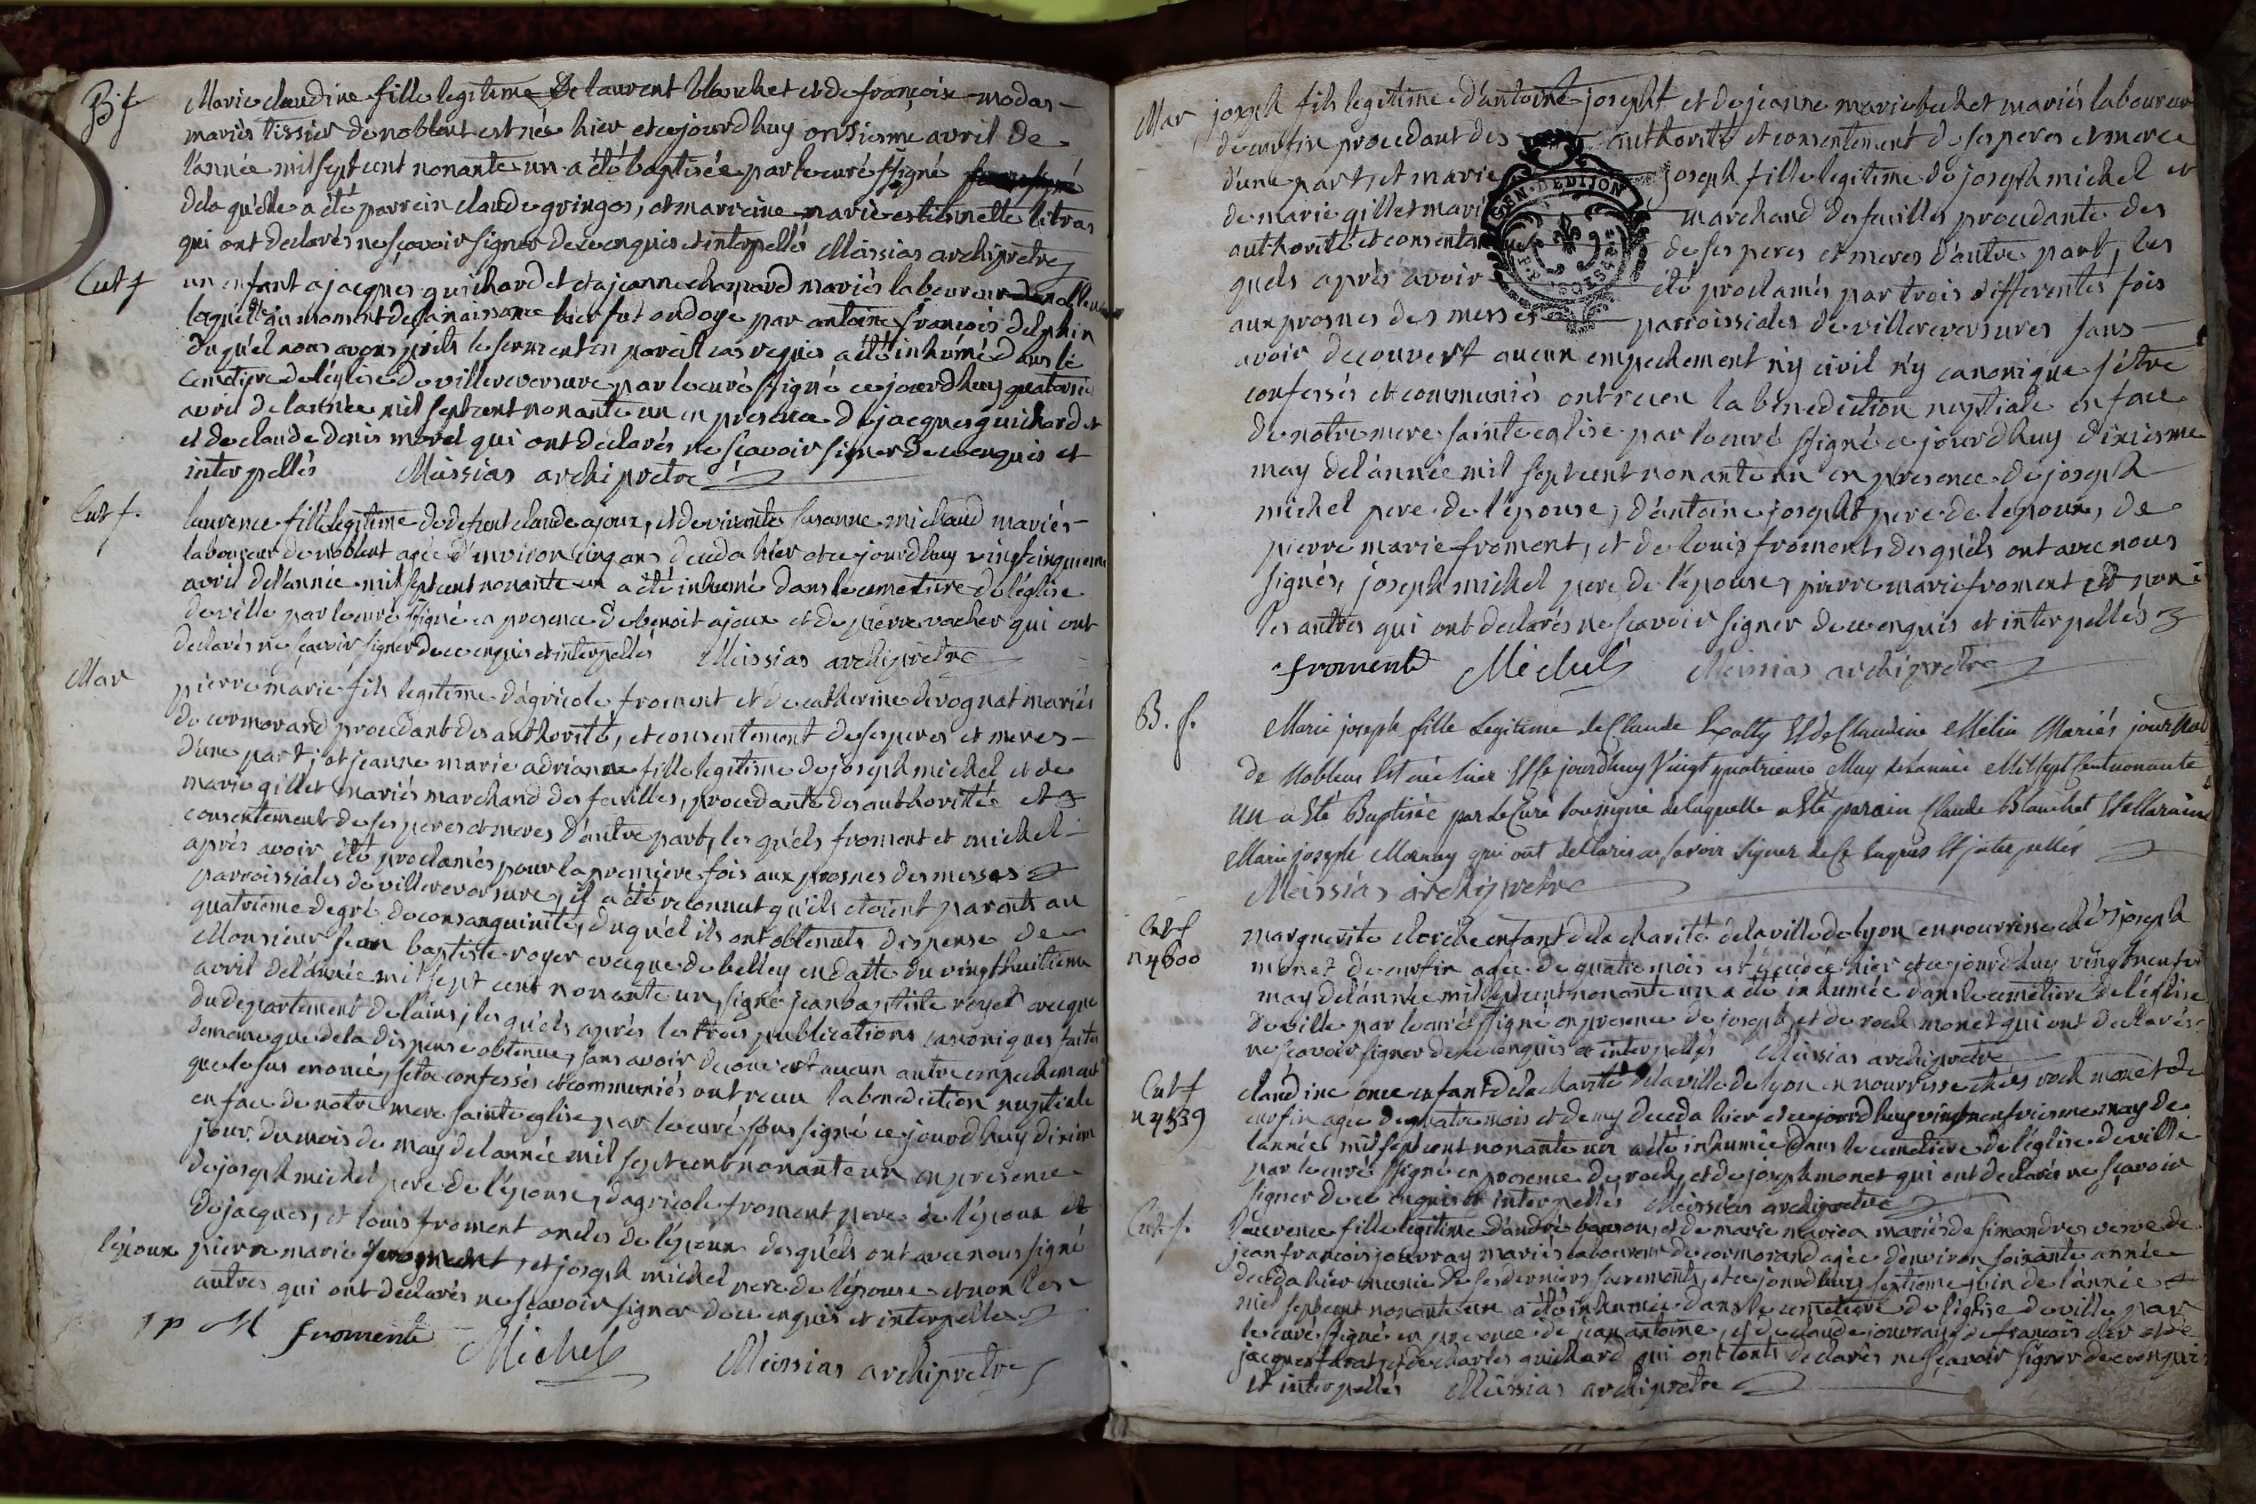 B f
Marie claudine fille legitime de laurent blanchet et de françoise modas
mariés tissier de noblent est née hier et ce jourd'huy onsiesme avril de
l'année mil sept cent nonante un a été baptisée par le curé ssigné
de la qu'elle a été parrein claude gringos, et marreine marie estiennette létras
qui ont declarés ne sçavoir signer de ce enquis et interpellés Meissias archiprêtre
Cut f
un enfant a jacques guichard et a jeanne chanard mariés laboureur
lequel qu moment de sa naissance hier fut ondoyé par antoine françois delphin
du quel nous avons prits le serment en pareil cas requis a été inhumé dans le
cemetiere de l'église de villereversure par le curé ssigné ce jourd'huy quatorsie
avril de l'année mil sept cent nonante un en presence de jacques guichard et
et de claude denis morel qui ont declarés ne sçavoir signer de ce enquis et
interpellés Meissias archiprêtre
Cut f.
laurence fille legitime de defunt claude ajoux, et de vivante susanne michaud mariés
laboureur de noblent agée d'environ cinq ans deceda hier et ce jourd'huy vingt cinquieme
avril de l'année mil sept cent nonante un a été inhumé dans le cemetiere de l'église
de ville par le curé ssigné en presence de benoit ajoux et de pierre vacher qui ont
declarés ne sçavoir signer de ce enquis et interpellés Meissias archiprêtre
Mar
pierre marie fils legitime d'agricole froment et de catherine devognat mariés
de cormorand procedant des authorité, et consentement de ses peres et meres
d'une part; et jeanne marie adrianne fille legitime de joseph michel et de
marie gillet mariés marchand des feuilles, procedante des authoritée et
consentement de ses peres et meres d'autre part, les quels froment et michel
après avoir été proclamés pour la premiere fois aux prosnes des messes
parroissiales de villereversure, il a été reconnut qu'ils etoient parents au
quatrieme degré de consanguinité, duquel ils ont obtenuts dispense de
Monsieur jean baptiste royer evecque de belley en datte du vingt huitieme
avril de l'année mil sept cent nonante un, signé jean baptiste royer evecque
du departement de l'ains, les quels après les trois publications canoniques faites
de meme que de la dispense obtenue, sans avoir decouvert aucun autre empechement
que le sus enoncé, s'etre confessés et communiés ont receu la benediction nuptiale
en face de notre mere sainte eglise par le curé sous signé ce jourd'huy dixieme
jour du mois de may de l'année mil sept cent nonante un en presence
de joseph michel pere de l'épouse, d'agricole froment pere de l'époux et
de jacques, et louis froment oncles de l'époux desquels ont avec nous signé
l'époux pierre marie froment, et joseph michel pere de l'épouse et non les
autres qui ont declarés ne sçavoir signer de ce enquis et interpellés
p M froment Michel Meissias archiprêtre
Mar
joseph fils legitime d'antoine josepht et de jeanne marie bechet mariés laboureur
de curfin procedant des authorité et consentement de ses peres et merce
d'une part, et marie joseph fille legitime de joseph michel et
de marie gillet mari marchand des feuilles procedante des
authorité et consentem de ses peres et meres d'autre part, les
quels après avoir été proclamés par trois differentes fois
aux prosnes des messes parroissiales de villereversures sans
avoir decouvert aucun empechement n'y civil n'y canonique s'être
confessés et communiés ont receu la benediction nuptiale en face
de notre mere sainte eglise par le curé ssigné ce jourd'huy dixiesme
may de l'année mil sept cent nonante un en presence de joseph
michel pere de l'épouse, d'antoine josepht pere de l'epoux, de
pierre marie froment, et de louis froment, desquels ont avec nous
signés, joseph michel pere de l'épouse, pierre marie froment et non
les autres qui ont declarés ne sçavoir signer de ce enquis et interpellés
froment Michel Meissias archiprêtre
B. f.
Marie joseph fille Legitime de Claude Et de Claudine Melin Mariés
de Noblens Est née hier Et Ce jourd'huy Vingt quatrieme May de l'année Mil Sept Cent nonante
un a Eté Baptisée par Le Curé Soussigné de laquelle a Eté parain Claude Blanchet Et Maraine
Marie joseph Mornay qui ont declarés ne savoir signer de Ce Enquis Et interpellés
Meissias archiprêtre
Cut f
n 4600
marguerite clorcie enfant de la charité de la ville de lyon en nourrisse chés joseph
monet de curfin agée de quatre mois est décedée hier et ce jourd'huy vingt neufvi
may de l'année mil sept cent nonante un a été inhumée dans le cemetiere de l'église
de ville par le curé ssigné en presence de joseph, et de rock monet qui ont declarés
ne sçavoir signer de ce enquis et interpellés Meissias archiprêtre
Cut f
n 4539
claudine once enfant de la charité de la ville de lyon en nourrisse chés rock monet de
curfin agée de quatre mois et demy deceda hier et ce jourd'huy vingt neufviesme may de
l'année mil sept cent nonante un a été inhumée dans le cemetiere de l'église de ville
par le curé ssigné en presence de rock, et de joseph monet qui ont declarés ne sçavoir
signer de ce enquis et interpellés Meissias archiprêtre
Cut. f.
laurence fille legitime d'andré et de marie mariés de simandre veuve de
jean françois jouvray mariés laboureur de cormorand agée d'environ soixante année
deceda hier munie de ses derniers sacrements, et ce jourd'huy septieme juin de l'année
mil sept cent nonante un a été inhumée dans le cemetiere de l'église de ville par
le curé ssigné en presence de jean antoine, et de claude jouvray, de françois et de
jacques et de charles guichard qui ont touts declarés ne sçavoir signer de ce enquis
et interpellés Meissias archiprêtre
GEN. DE DIJON